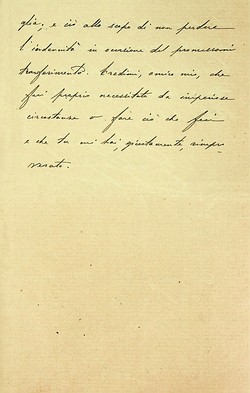 glia; e ciò allo scopo di non perdere
l'indennità in occasione del promessomi
trasferimento. Credimi, amico mio, che
fui proprio necessitato da imperiose
circostanze a fare ciò che feci
e che tu mi hai, giustamente, rimpro-
verato.